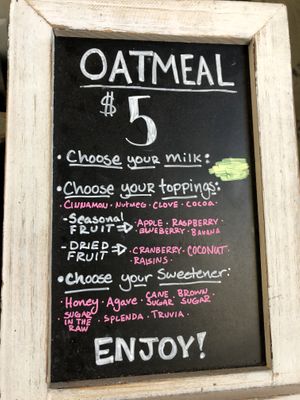 OATMEAL
$5
• Choose your milk:
• Choose your toppings:
• CINNAMON • NUTMEG • CLOVE • COCOA •
- Seasonal FRUIT → • APPLE • RASPBERRY
• BLUEBERRY • BANANA
- DRIED FRUIT → • CRANBERRY • COCONUT •
RAISINS •
• Choose your Sweetener:
• Honey • Agave • CANE SUGAR • BROWN SUGAR
• SUGAR IN THE RAW • SPLENDA • TRUVIA •
ENJOY!